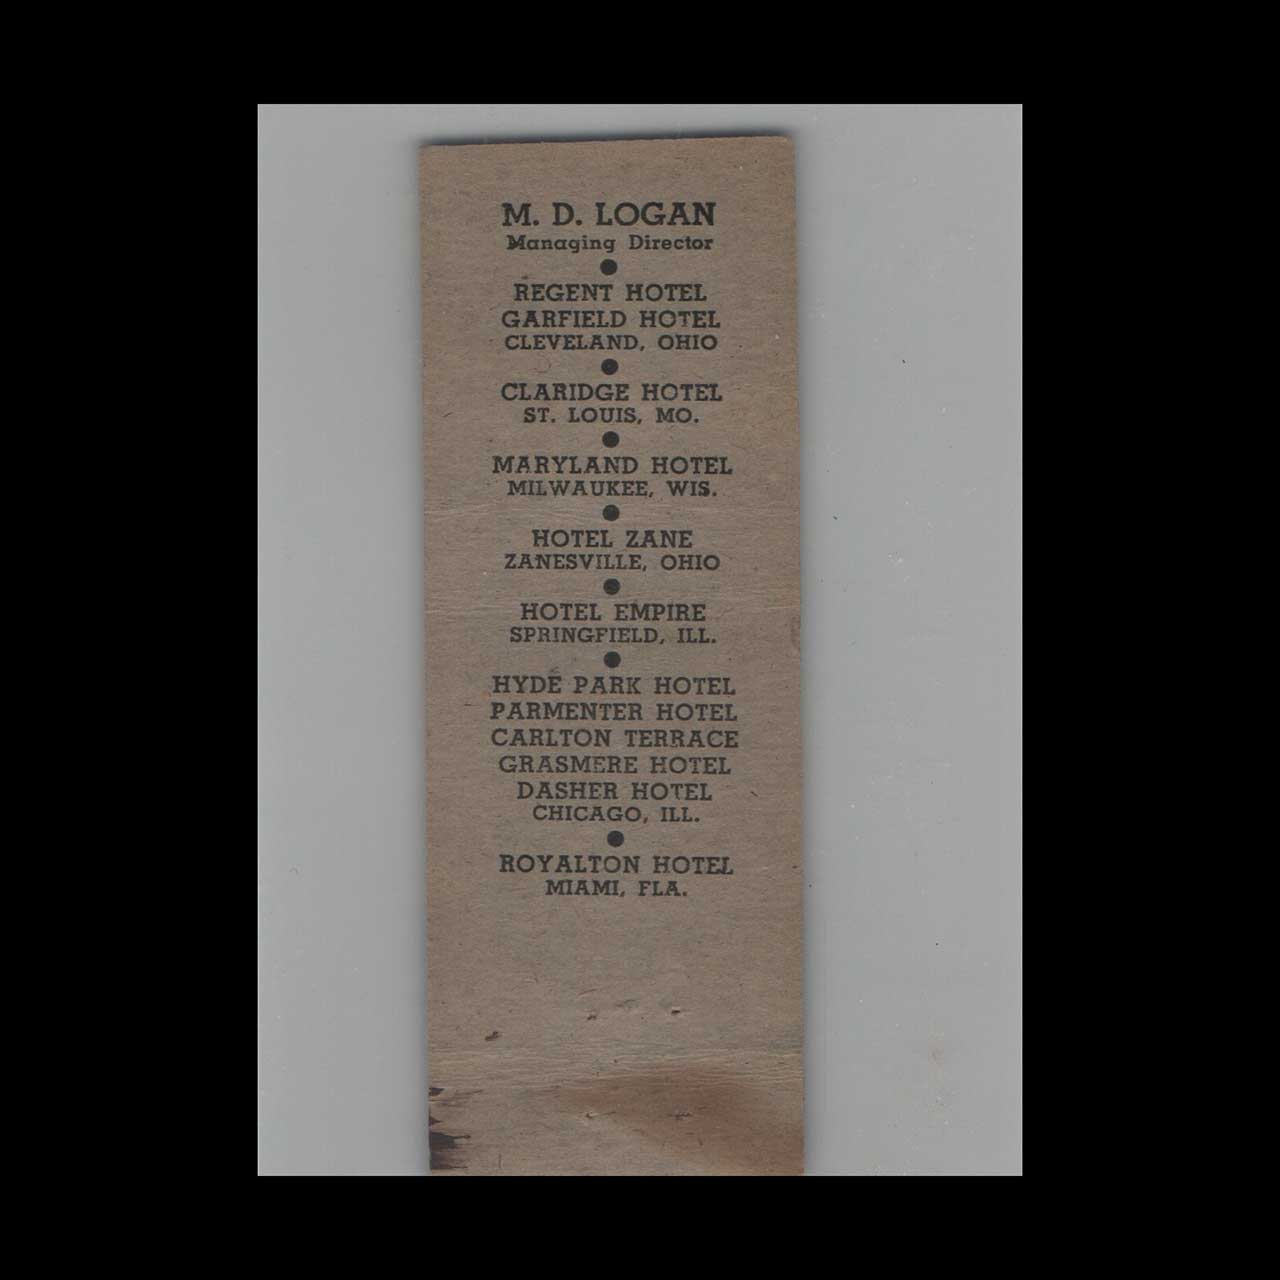 M. D. LOGAN
Managing Director
REGENT HOTEL
GARFIELD HOTEL
CLEVELAND, OHIO
CLARIDGE HOTEL
ST. LOUIS, MO.
MARYLAND HOTEL
MILWAUKEE, WIS.
HOTEL ZANE
ZANESVILLE, OHIO
HOTEL EMPIRE
SPRINGFIELD, ILL.
HYDE PARK HOTEL
PARMENTER HOTEL
CARLTON TERRACE
GRASMERE HOTEL
DASHER HOTEL
CHICAGO, ILL.
ROYALTON HOTEL
MIAMI, FLA.